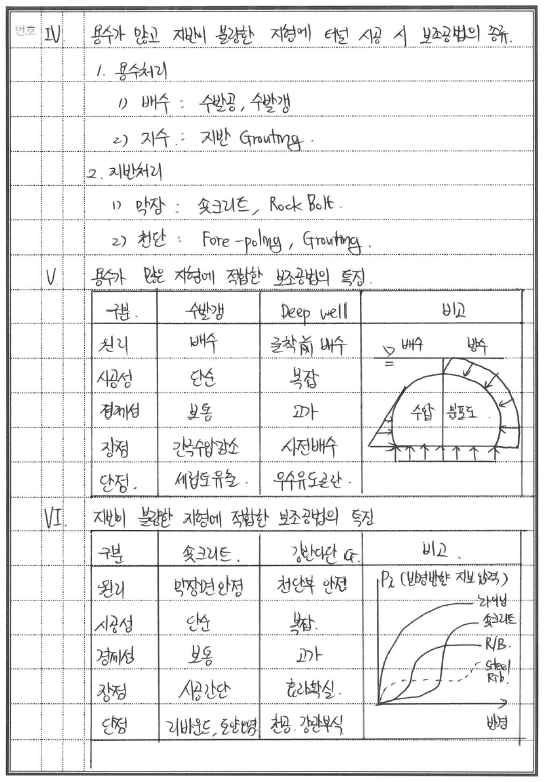 번호
IV. 용수가 많고 지반이 불량한 지형에 터널 시공 시 보조공법의 종류.
1. 용수처리
1) 배수 : 수발공, 수발갱
2) 지수 : 지반 Grouting.
2. 지반처리
1) 막장 : 숏크리트, Rock Bolt.
2) 천단 : Fore-poling, Grouting.
V. 용수가 많은 지형에 적합한 보조공법의 특징.
구분. 수발갱 Deep well 비고
원리 배수 굴착前 배수
시공성 단순 복잡
경제성 보통 고가
장점 간극수압감소 사전배수
단점. 세립토유출. 우수유도곤란.
배수 방수
수압 분포도.
VI. 지반이 불량한 지형에 적합한 보조공법의 특징
구분 숏크리트. 강관다단 G. 비고.
원리 막장면안정 천단부 안정
시공성 단순 복잡.
경제성 보통 고가
장점 시공간단 효과확실.
단점 리바운드, 천공. 강관부식
라이닝
숏크리트
R/B.
Steel
Rib.